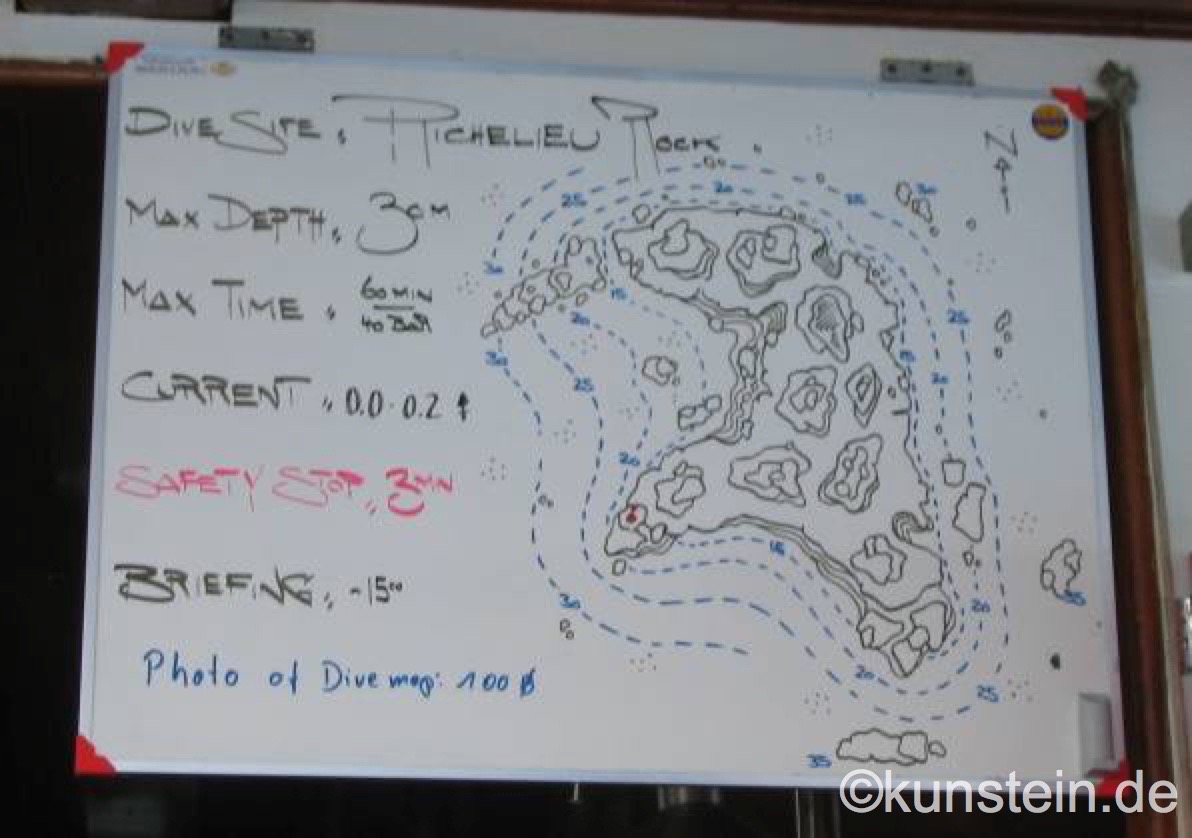 DIVE SITE : RICHELIEU ROCK .
MAX DEPTH : 30M
MAX TIME : 60 MIN
40 BAR
CURRENT : 0.0-0.2
SAFETY STOP : 3MN
BRIEFING : ~15⁰⁰
Photo of Dive map: 100 ฿
N
25
20
25
30
30
15
20
25
30
25
15
20
20
15
30
20
20
25
35
35
©kunstein.de